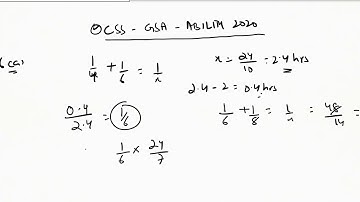 OCSS - GSA - ABILIM 2020
1/4 + 1/6 = 1/x
x = 24/10 = 2.4 hrs
2.4 - 2 = 0.4 hrs
0.4/2.4 = 1/6
1/6 + 1/8 = 1/x = 48/14 =
1/6 × 24/7